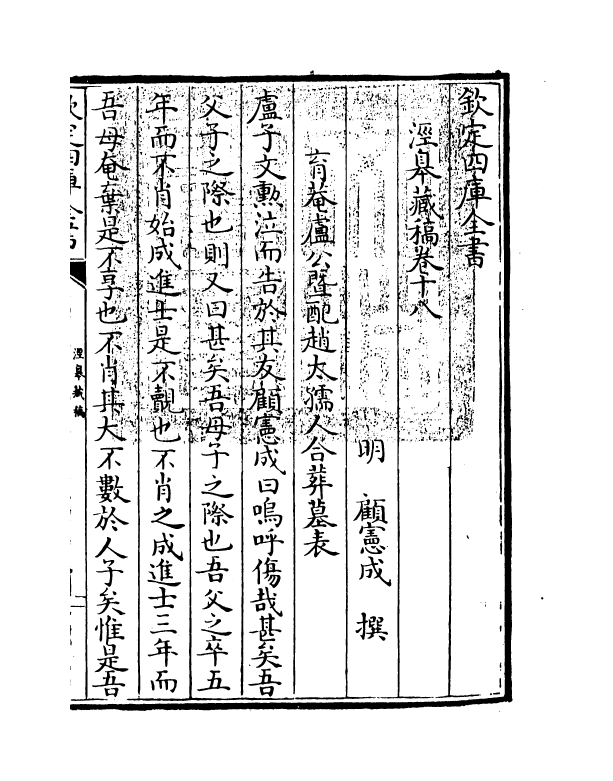 欽定四庫全書
涇臯藏稿卷十八
明 顧憲成 撰
育菴盧公暨配趙太孺人合葬墓表
盧子文勲泣而告於其友顧憲成曰嗚呼傷哉甚矣吾
父子之際也則又曰甚矣吾母子之際也吾父之卒五
年而不肖始成進士是不覿也不肖之成進士三年而
吾母奄棄是不享也不肖其大不數於人子矣惟是吾
欽定四庫全書
涇臯藏稿